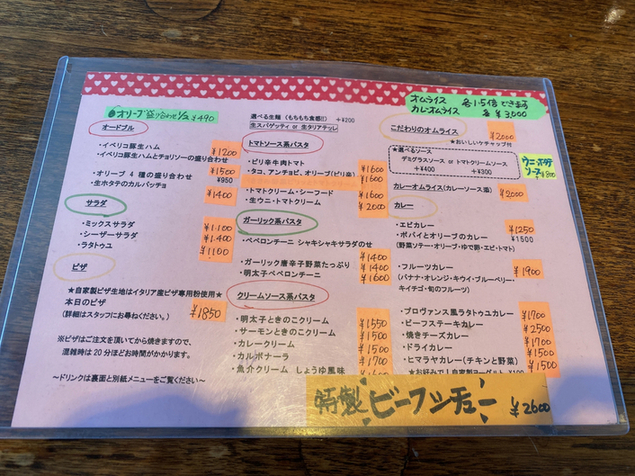 ●オリーブ盛り合わせ1/2 ¥490
オードブル
・イベリコ豚生ハム ¥1200
・イベリコ豚生ハムとチョリソーの盛り合わせ ¥1500
・オリーブ 4 種の盛り合わせ ¥950
・生ホタテのカルパッチョ ¥1400
サラダ
・ミックスサラダ ¥1.100
・シーザーサラダ ¥1.400
・ラタトゥユ ¥1100
ピザ
★自家製ピザ生地はイタリア産ピザ専用粉使用★
本日のピザ ¥1850
(詳細はスタッフにお尋ねください。)
※ピザはご注文を頂いてから焼きますので、
混雑時は 20 分ほどお時間がかかります。
～ドリンクは裏面と別紙メニューをご覧ください～
選べる生麺(もちもち食感!!) +¥200
生スパゲッティ or 生タリアテッレ
トマトソース系パスタ
・ピリ辛牛肉トマト ¥1600
・タコ、アンチョビ、オリーブ(ピリ辛) ¥1600
・トマトクリーム・シーフード ¥1600
・生ウニ・トマトクリーム ¥2000
ガーリック系パスタ
・ペペロンチーニ シャキシャキサラダのせ ¥1400
・ガーリック唐辛子野菜たっぷり ¥1400
・明太子ペペロンチーニ ¥1600
クリームソース系パスタ
・明太子ときのこクリーム ¥1550
・サーモンときのこクリーム ¥1500
・カレークリーム ¥1500
・カルボナーラ ¥1500
・魚介クリーム しょうゆ風味 ¥1700
オムライス 各1.5倍できます
カレーオムライス 各¥3,000
こだわりのオムライス ¥2000
★おいしいケチャップ付
★選べるソース
デミグラスソース or トマトクリームソース
+¥400 +¥300
カレーオムライス(カレーソース盛) ¥2000
カレー
・エビカレー ¥1250
・ポパイとオリーブのカレー ¥1500
(野菜ソテー・オリーブ・ゆで卵・エビ・トマト)
・フルーツカレー ¥1900
(バナナ・オレンジ・キウイ・ブルーベリー・
イチゴ・旬のフルーツ)
・プロヴァンス風ラタトゥユカレー ¥1700
・ビーフステーキカレー ¥2500
・焼きチーズカレー ¥1700
・ドライカレー ¥1500
・ヒマラヤカレー(チキンと野菜) ¥1500
★お好みで!自家製ヨーグルト ¥100
特製ビーフシチュー ¥2600